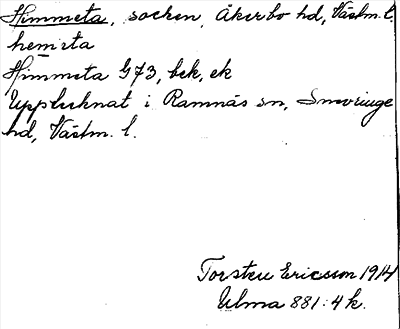 Himmeta, socken, Åkerbo hd, Västm. l.
hemsta
Himmeta G73, bek, ek
Upptecknat i Ramnäs sn, Snevringe
hd, Västm. l.
Torsten Ericsson 1914
Ulma 881:4 k.